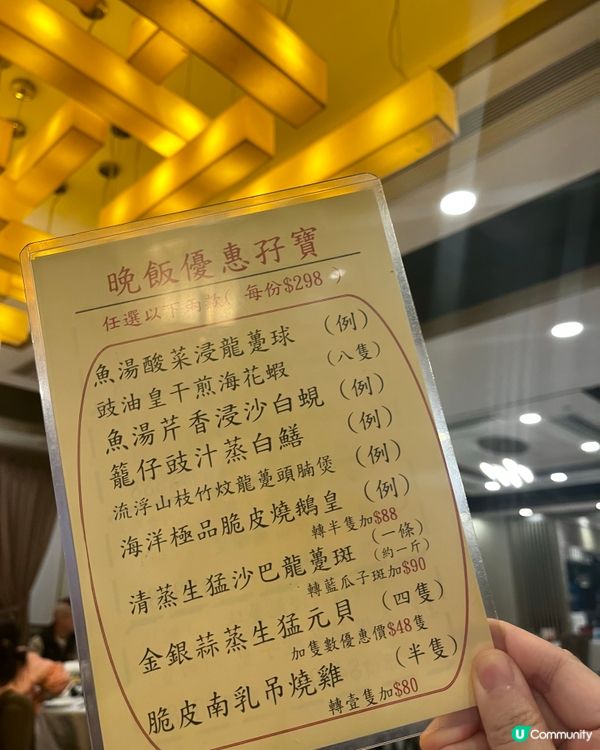 晚飯優惠孖寶
任選以下兩款(每份$298)
魚湯酸菜浸龍躉球 (例)
豉油皇干煎海花蝦 (八隻)
魚湯芹香浸沙白蜆 (例)
籠仔豉汁蒸白鱔 (例)
流浮山枝竹炆龍躉頭腩煲 (例)
海洋極品脆皮燒鵝皇 (例)
轉半隻加$88
清蒸生猛沙巴龍躉斑 (一條)
(約一斤)
轉藍瓜子斑加$90
金銀蒜蒸生猛元貝 (四隻)
加隻數優惠價$48隻
脆皮南乳吊燒雞 (半隻)
轉壹隻加$80
U Community